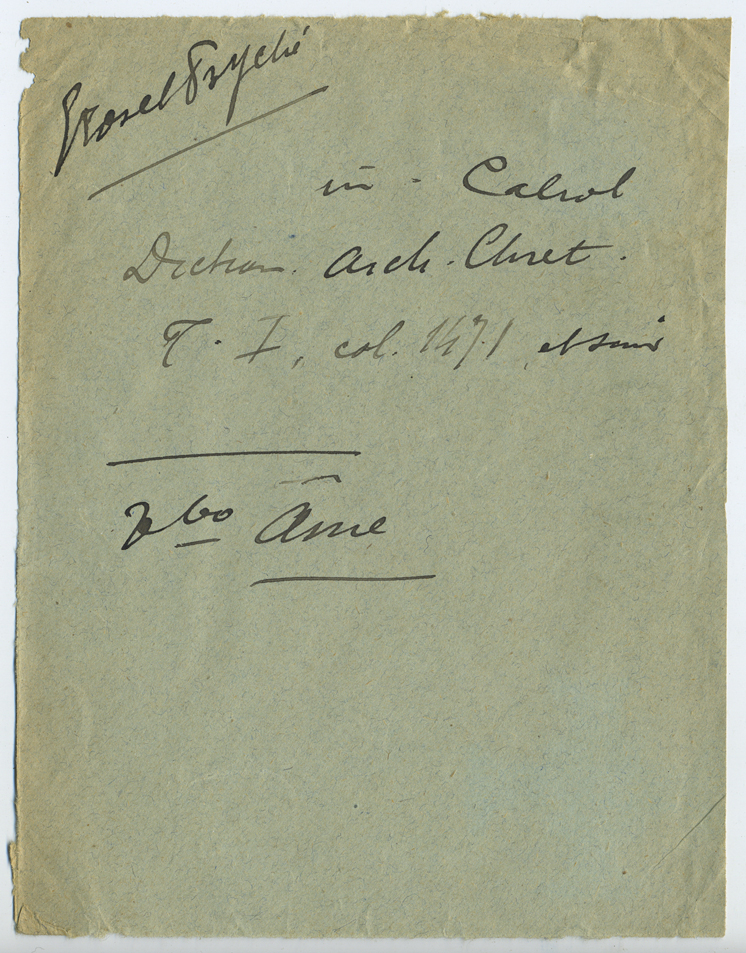 Psyché
in - Cabrol
Diction. Arch. Chret.
T. I, col. 1471 et suiv
Vbo Âme